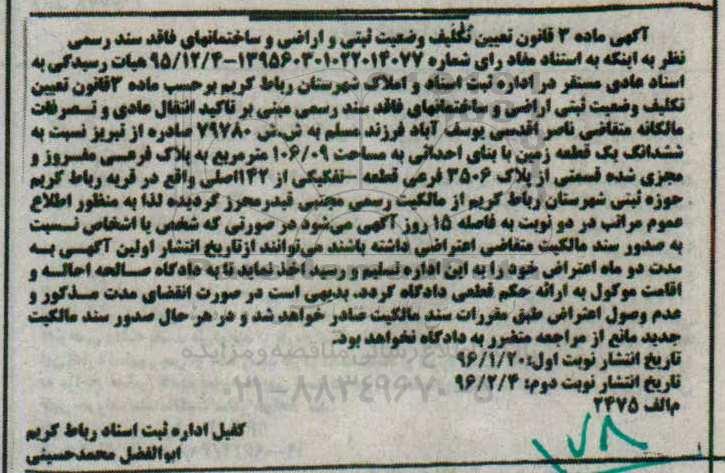 آگهی ماده ۳ قانون تعیین تکلیف وضعیت ثبتی و اراضی و ساختمانهای فاقد سند رسمی
نظر به اینکه به استناد مفاد رای شماره ۱۳۹۵۶۰۳۰۱۰۲۲۰۱۴۰۷۷-۹۵/۱۲/۴ هیات رسیدگی به
اسناد عادی مستقر در اداره ثبت اسناد و املاک شهرستان رباط کریم برحسب ماده ۳قانون تعیین
تکلیف وضعیت ثبتی اراضی و ساختمانهای فاقد سند رسمی مبنی بر تاکید انتقال عادی و تصرفات
مالکانه متقاضی ناصر اقدسی یوسف آباد فرزند مسلم به ش.ش ۷۹۷۸۰ صادره از تبریز نسبت به
ششدانگ یک قطعه زمین با بنای احداثی به مساحت ۱۰۶/۰۹ مترمربع به پلاک فرعی مفروز و
مجزی شده قسمتی از پلاک ۳۵۰۶ فرعی قطعه –تفکیکی از ۱۴۲اصلی واقع در قریه رباط کریم
حوزه ثبتی شهرستان رباط کریم از مالکیت رسمی مجتبی قیدرمحرز گردیده لذا به منظور اطلاع
عموم مراتب در دو نوبت به فاصله ۱۵ روز آگهی می‌شود در صورتی که شخص یا اشخاص نسبت
به صدور سند مالکیت متقاضی اعتراضی داشته باشند می‌توانند ازتاریخ انتشار اولین آگهی به
مدت دو ماه اعتراض خود را به این اداره تسلیم و رسید اخذ نماید تا به دادگاه صالحه احاله و
اقامت موکول به ارائه حکم قطعی دادگاه گردد. بدیهی است در صورت انقضای مدت مذکور و
عدم وصول اعتراض طبق مقررات سند مالکیت صادر خواهد شد و در هر حال صدور سند مالکیت
جدید مانع از مراجعه متضرر به دادگاه نخواهد بود.
تاریخ انتشار نوبت اول:۹۶/۱/۲۰
تاریخ انتشار نوبت دوم: ۹۶/۲/۴
م‌الف ۲۴۷۵
کفیل اداره ثبت اسناد رباط کریم
ابوالفضل محمدحسینی
۱۷۸
۰۲۱-۸۸۳۴۹۶۷۰-۵